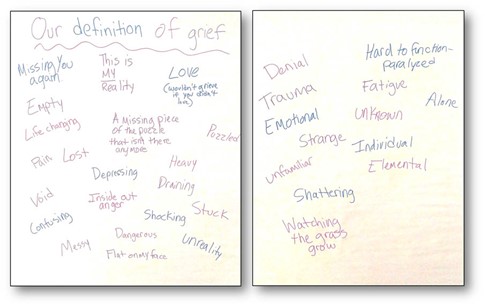 Our definition of grief
Missing You
again
This is
MY
Reality
Love
(wouldn't grieve
if you didn't
love)
Empty
Life changing
A missing piece
of the puzzle
that isn't there
anymore
Puzzled
Pain
Lost
Heavy
Depressing
Draining
Void
Inside out
anger
Stuck
Confusing
Shocking
Messy
Dangerous
unreality
Flat on my face
Denial
Hard to function-
paralyzed
Trauma
Fatigue
Alone
Emotional
UNKNOWN
Strange
Individual
unfamiliar
Elemental
Shattering
Watching
the grass
grow